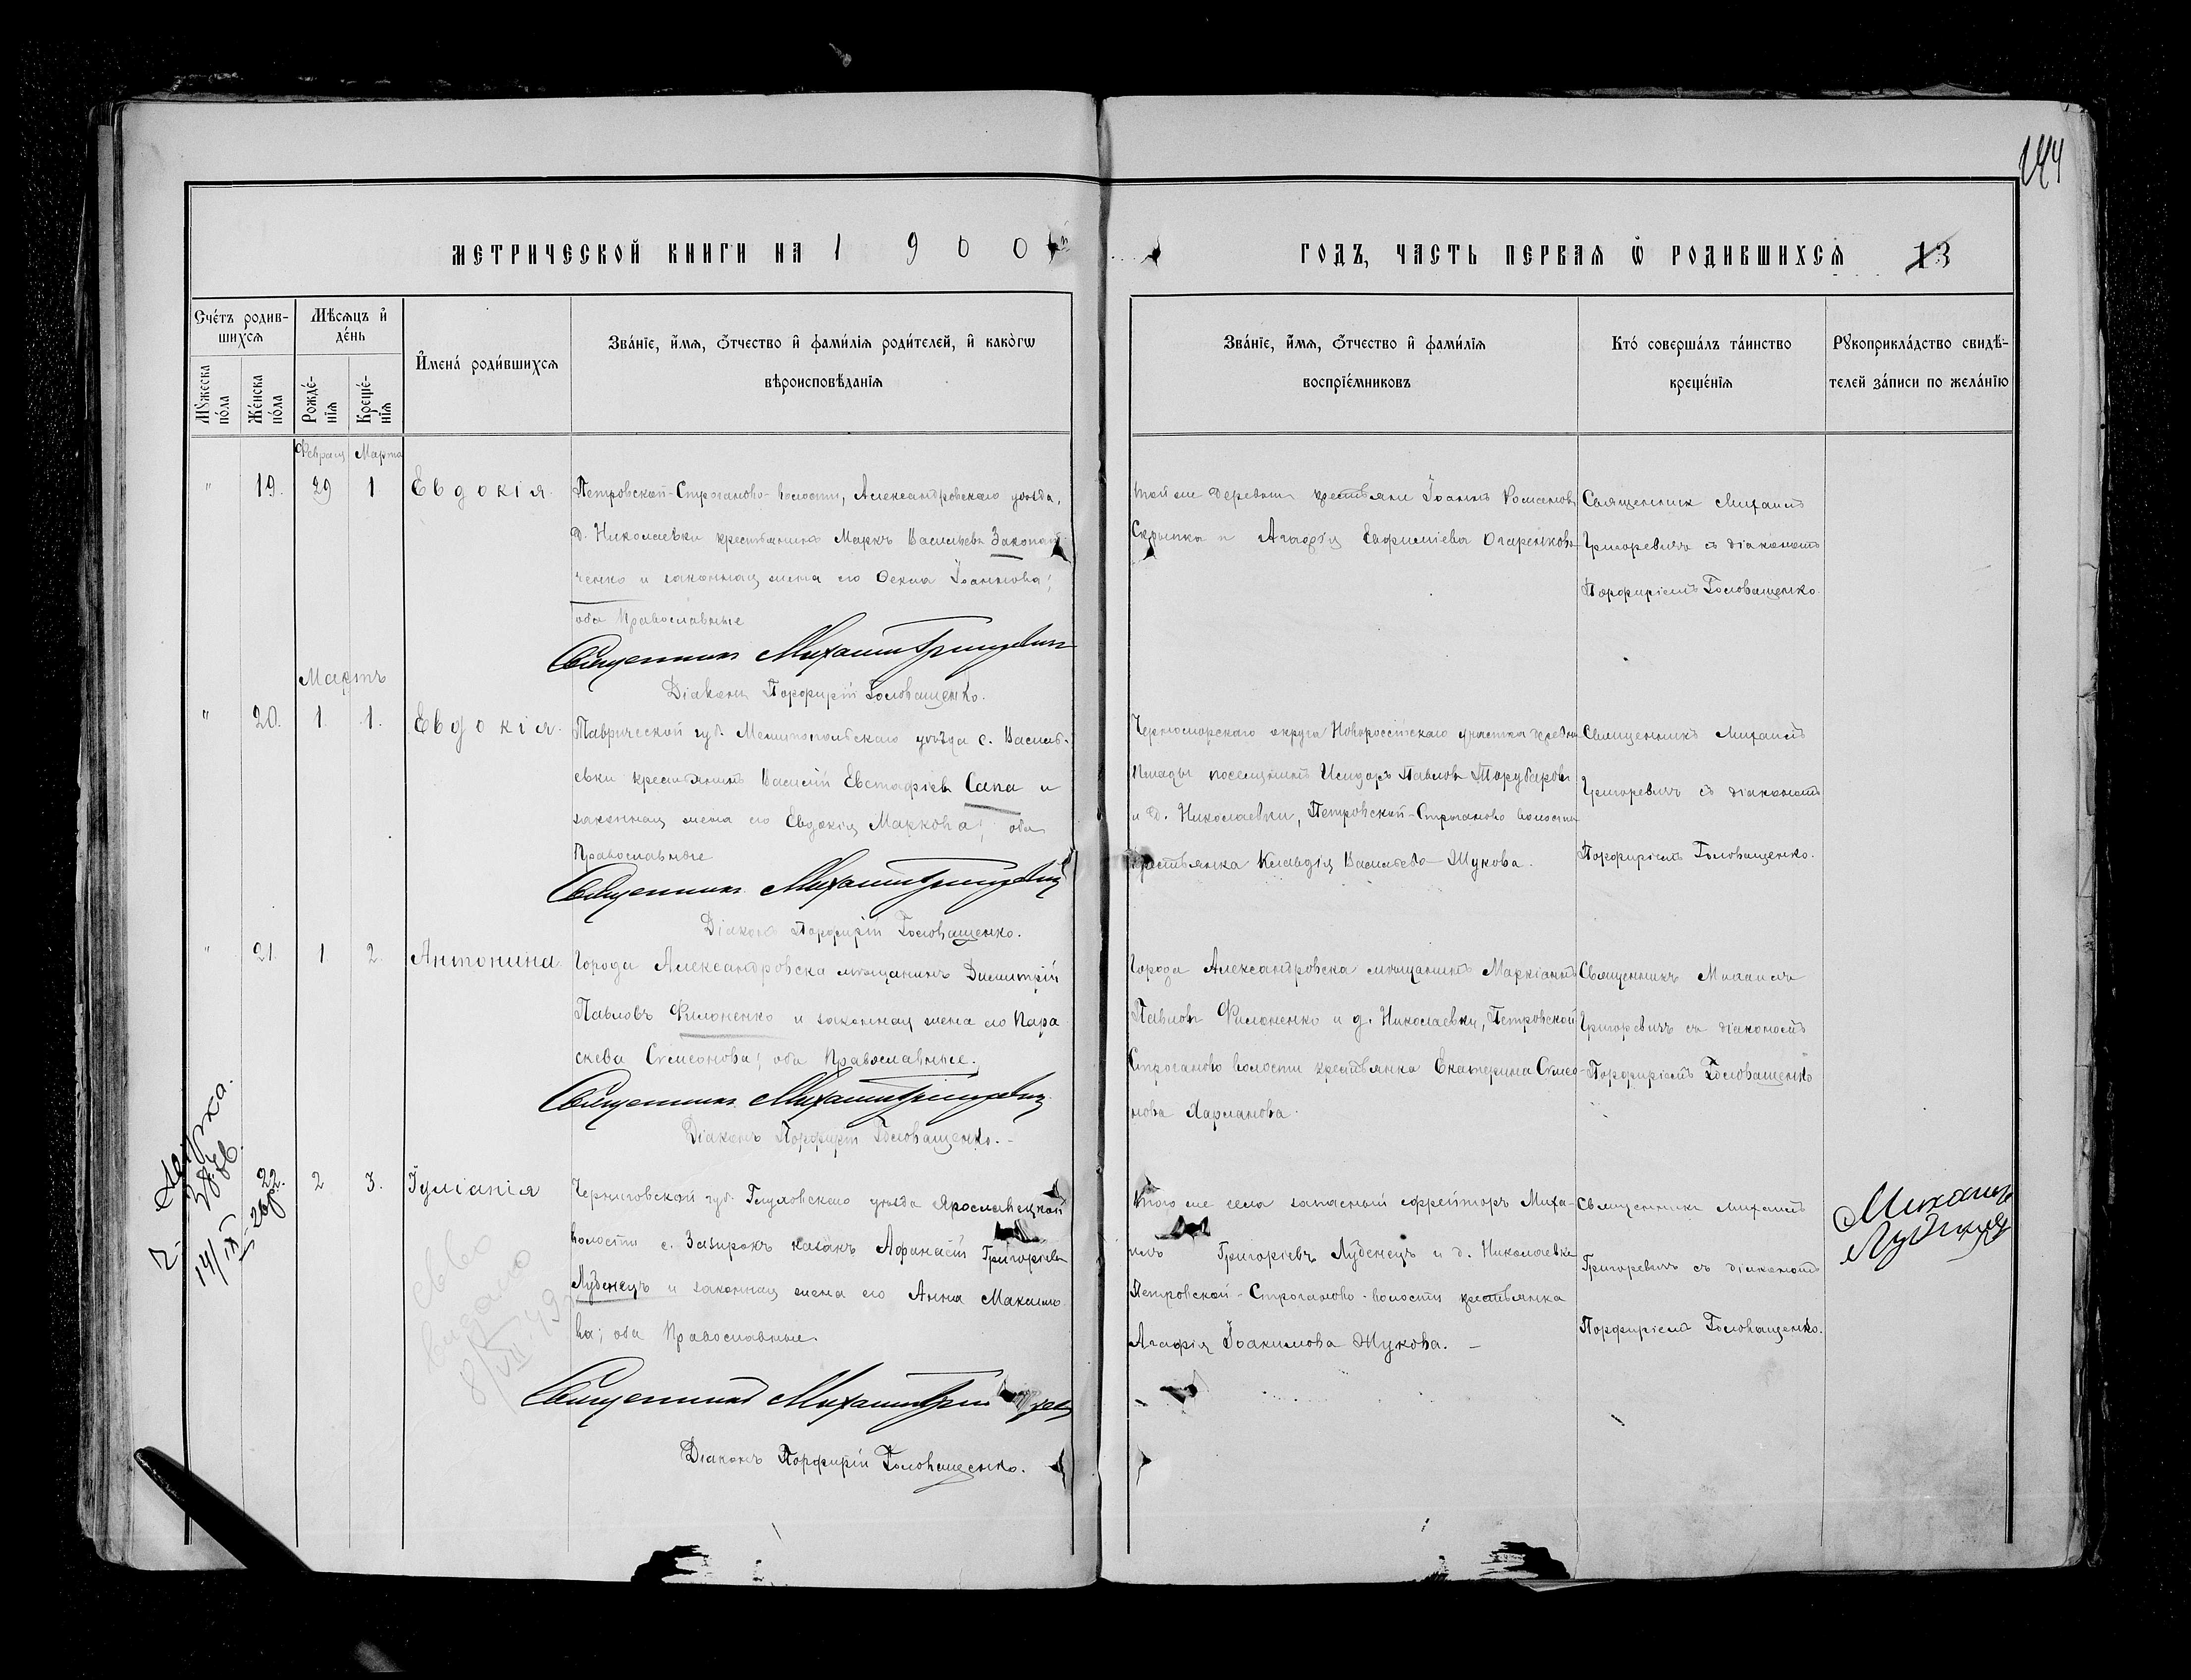 144
МЕТРИЧЕСКОЙ КНИГИ НА 1900й
ГОДЪ, ЧАСТЬ ПЕРВАЯ Ѿ РОДИВШИХСЯ 13
Счетъ родив-
шихся
Мѣсяцъ и
день
Мужеска
пола
Женска
пола
Рожде-
нія
Креще-
нія
Имена родившихся
Званіе, имя, отчество и фамилія родителей, и какого
вѣроисповѣданія
Званіе, имя, отчество и фамилія
воспріемниковъ
Кто совершалъ таинство
крещенія
Рукоприкладство свидѣ-
телей записи по желанію
Февраля Марта
" 19. 29 1 Евдокія
Петровской-Строганово-волости, Александровскаго уѣзда,
д. Николаевки крестьянинъ Маркъ Васильевъ Закопай-
ченко и законная жена его Ѳекла Іоаннова;
оба Православные
Священникъ Михаилъ Григоревичъ
Діаконъ Порфирій Головащенко.
той же деревни крестьяне Іоаннъ Романовъ
Скрыпка и Агафія Евфиміева Огаренкова
Священник Михаилъ
Григоревичъ съ діакономъ
Порфиріемъ Головащенко.
Мартъ
" 20. 1. 1. Евдокія.
Таврической губ. Мелитопольскаго уѣзда с. Василь-
евки крестьянинъ Василій Евстафіевъ Сапа и
законная жена его Евдокія Маркова; оба
Православные
Священникъ Михаилъ Григоревичъ
Діаконъ Порфирій Головащенко.
Черноморскаго округа Новороссійскаго участка деревни
Пшады поселянинъ Исидоръ Павловъ Торубаровъ
и д. Николаевки, Петровской-Строганово волости
крестьянка Клавдія Васильева Жукова.
Священникъ Михаилъ
Григоревичъ съ діакономъ
Порфиріемъ Головащенко.
" 21. 1 2. Антонина
Города Александровска мѣщанинъ Димитрій
Павловъ Филоненко и законная жена его Пара
скева Симеонова; оба Православные.
Священникъ Михаилъ Григоревичъ
Діаконъ Порфирій Головащенко.
Города Александровска мѣщанинъ Маркіанъ
Павловъ Филоненко и д. Николаевки, Петровской
Строганово волости крестьянка Екатерина Симео-
нова Харланова.
Священникъ Михаилъ
Григоревичъ съ діакономъ
Порфиріемъ Головащенко
22. 2 3. Іуліанія
14/IX
Черниговской губ. Глуховскаго уѣзда Ярославецкой
волости с. Зазирокъ казакъ Афанасій Григоріевъ
Лузенецъ и законная жена его Анна Макимо
ва; оба Православные.
Священникъ Михаилъ
Діаконъ Порфирій Головащенко.
того же села запасный ефрейторъ Миха-
илъ Григоріевъ Лузенецъ и д. Николаевки
Петровской-Строганово-волости крестьянка
Агафія Іоакимова Жукова.
Священникъ Михаилъ
Григоревичъ съ діакономъ
Порфиріемъ Головащенко.
Михаилъ
св-во
выдано
8/VIII 49